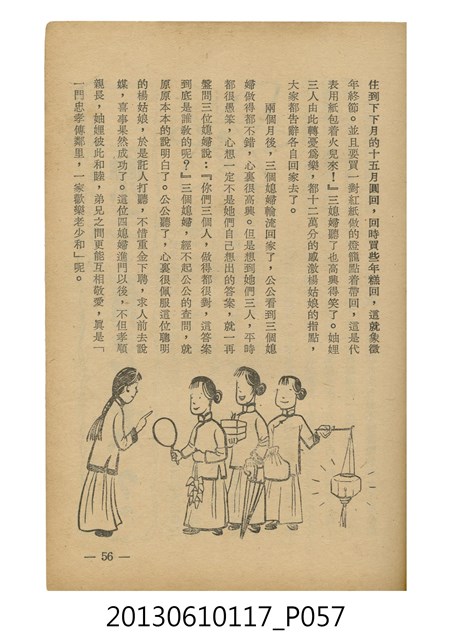 住到下下月的十五月圓回，回時買些年糕回，這就象徵
年終節。並且要買一對紅紙做的燈籠點着帶回，這是代
表用紙包着火兒來！』三媳婦聽了也高興得笑了。妯娌
三人由此轉憂爲樂，都十二萬分的感激楊姑娘的指點，
大家都告辭各自回家去了。
兩個月後，三個媳婦輪流回家了，公公看到三個媳
婦做得都不錯，心裏很高興。但是想到她們三人，平時
都很愚笨，心想一定不是她們自己想出的答案，就一再
盤問三位媳婦說：『你們三個人，做得都很對，這答案
到底是誰敎的呢？』三個媳婦，經不起公公的查問，就
原原本本的說明白了。公公聽了，心裏很佩服這位聰明
的楊姑娘，於是託人打聽，不惜重金下聘，求人前去說
媒，喜事果然成功了。這位四媳婦進門以後，不但孝順
親長，妯娌彼此和睦，弟兄之間更能互相敬愛，眞是「
一門忠孝傳鄰里，一家歡樂老少和」呢。
— 56 —
20130610117_P057